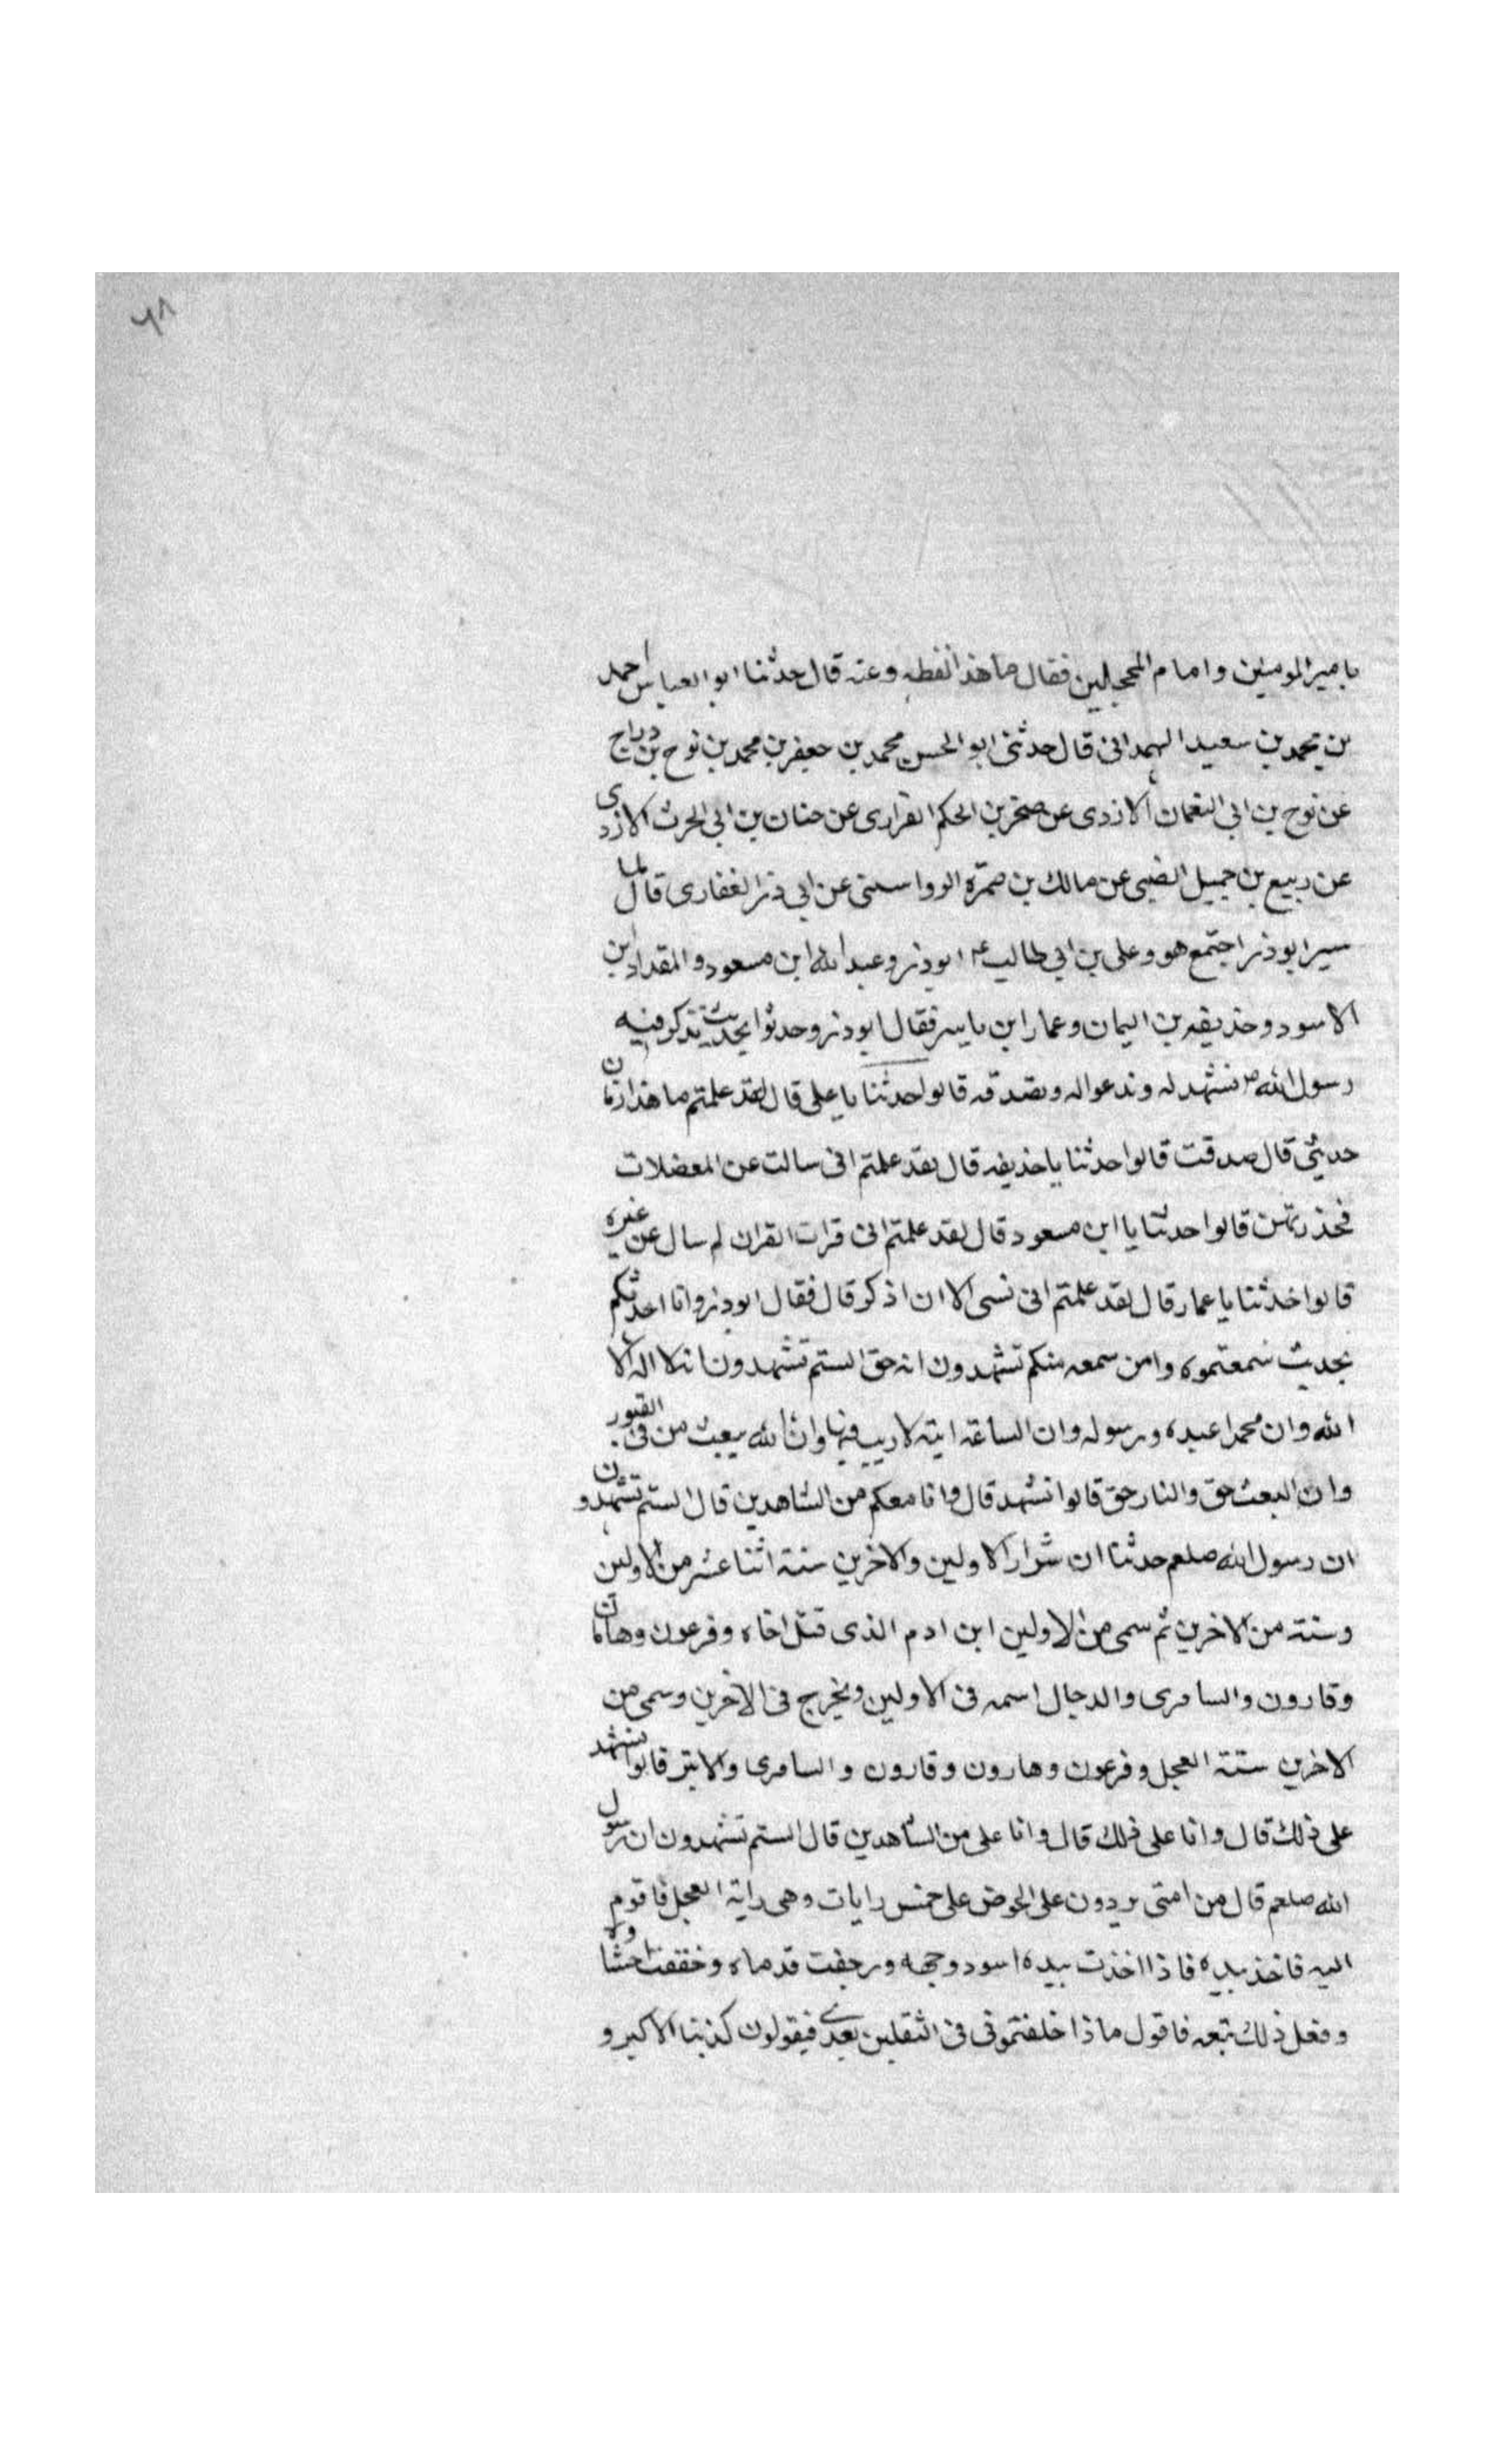 ٦٨
بامير المومنين وامام المحجلين فقال ما هذا لفظه وعنه قال حدثنا ابو العباس احمد
بن محمد بن سعيد الهمدانى قال حدثنى ابو الحسن محمد بن جعفر بن محمد بن نوح بن دراج
عن نوح بن ابى النعمان الازدى عن صخر بن الحكم الفرارى عن حنان بن ابى الحرث الازدى
عن ربيع بن جميل الضبى عن مالك بن ضمره الرواسىنى عن ابى ذر الغفارى قال لما
سير ابو ذر اجتمع هو وعلى بن ابى طالب ع ابو ذر وعبد الله ابن مسعود والمقداد بن
الاسود وحذيفه بن اليمان وعمار ابن ياسر فقال ابو ذر وحدثوا بحديث نتذكر فيه
رسول الله ص نشهد له وندعوا له ونصدقه قالوا حدثنا يا على قال لقد علمتم ما هذا زمان
حديثى قال صدقت قالوا حدثنا يا حذيفه قال لقد علمتم انى سالت عن المعضلات
فحذرتهن قالوا حدثنا يا ابن مسعود قال لقد علمتم انى قرات القران لم سال عن غيره
قالوا حدثنا يا عمار قال لقد علمتم انى نسى الا ان اذكر قال فقال ابو ذر وانا احدثكم
بحديث سمعتموه وامن سمعه منكم تشهدون انه حق الستم تشهدون ان لا اله الا
الله وان محمدا عبده ورسوله وان الساعة اتية لا ريب فيها وان الله يبعث من فى القبور
وان البعث حق والنار حق قالوا نشهد قال وانا معكم من الشاهدين قال الستم تشهدون
ان رسول الله صلعم حدثنا ان شرار الاولين والاخرين ستة اثنا عشر من الاولين
وستة من الاخرين ثم سمى من الاولين ابن ادم الذى قتل اخاه وفرعون وهامان
وقارون والسامرى والدجال اسمه فى الاولين ويخرج فى الاخرين وسمى من
الاخرين ستة العجل وفرعون وهارون وقارون والسامرى والابتر قالوا نشهد
على ذلك قال وانا على ذلك قال وانا على من الشاهدين قال الستم تشهدون ان رسول
الله صلعم قال من امتى يردون على الحوض على خمس رايات وهى راية العجل فاقوم
اليه فاخذ بيده فاذا اخذت بيده اسود وجهه ورجفت قدماه وخفقت احشاولا
وفعل ذلك تبعه فاقول ماذا خلفتمونى فى الثقلين بعدى فيقولون كذبنا الاكبر و